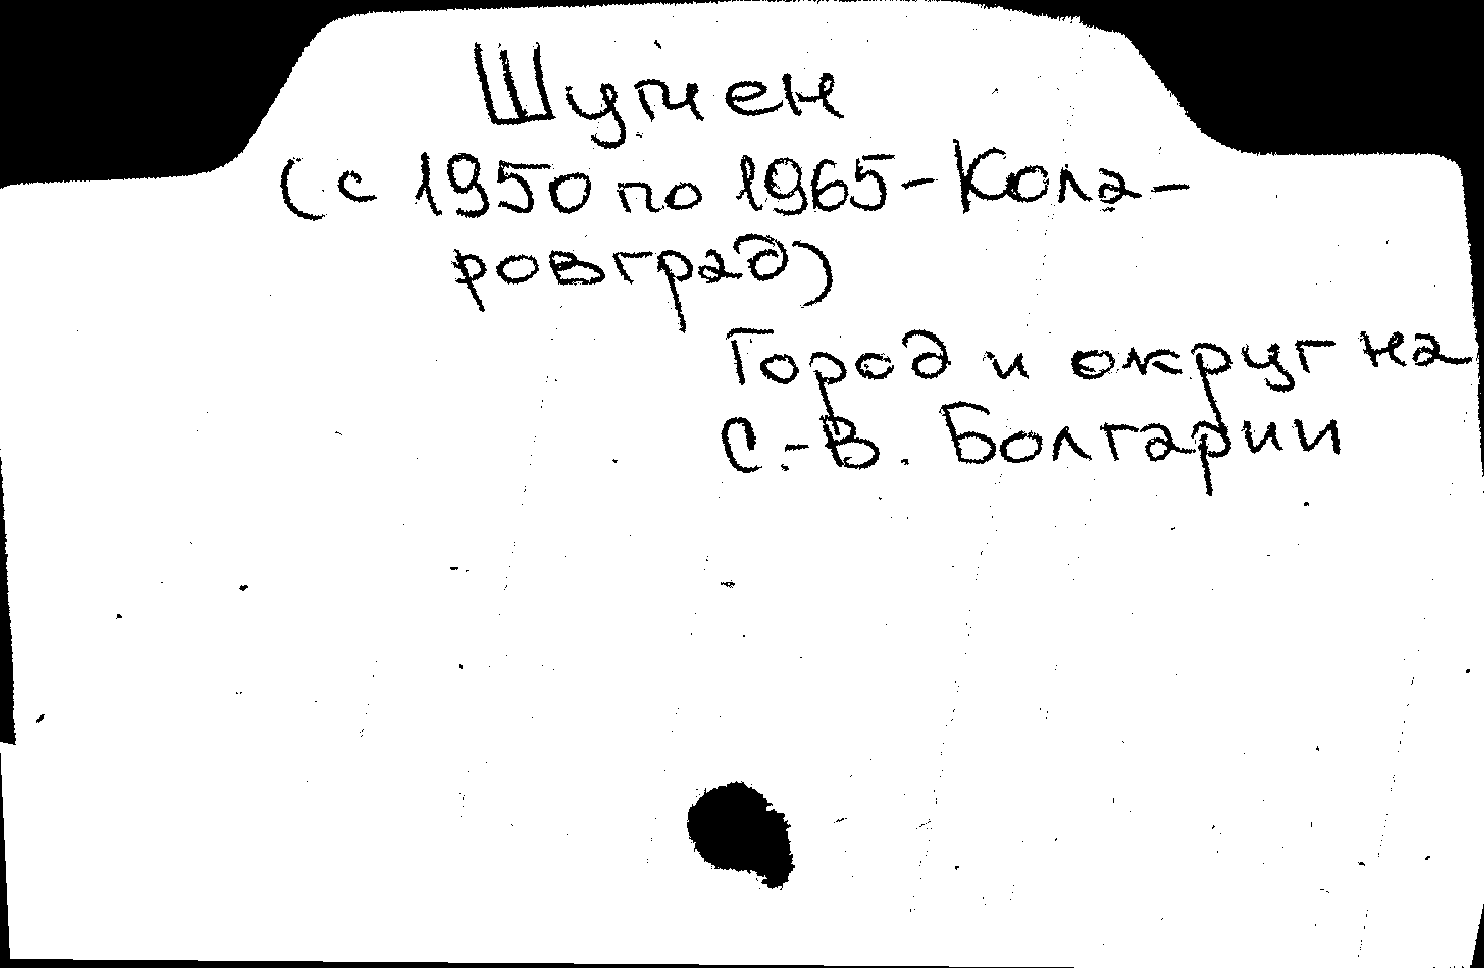 Шумен
(с 1950 по 1965-Кола-
ровград)
Город и округ на
С.-В. Болгарии